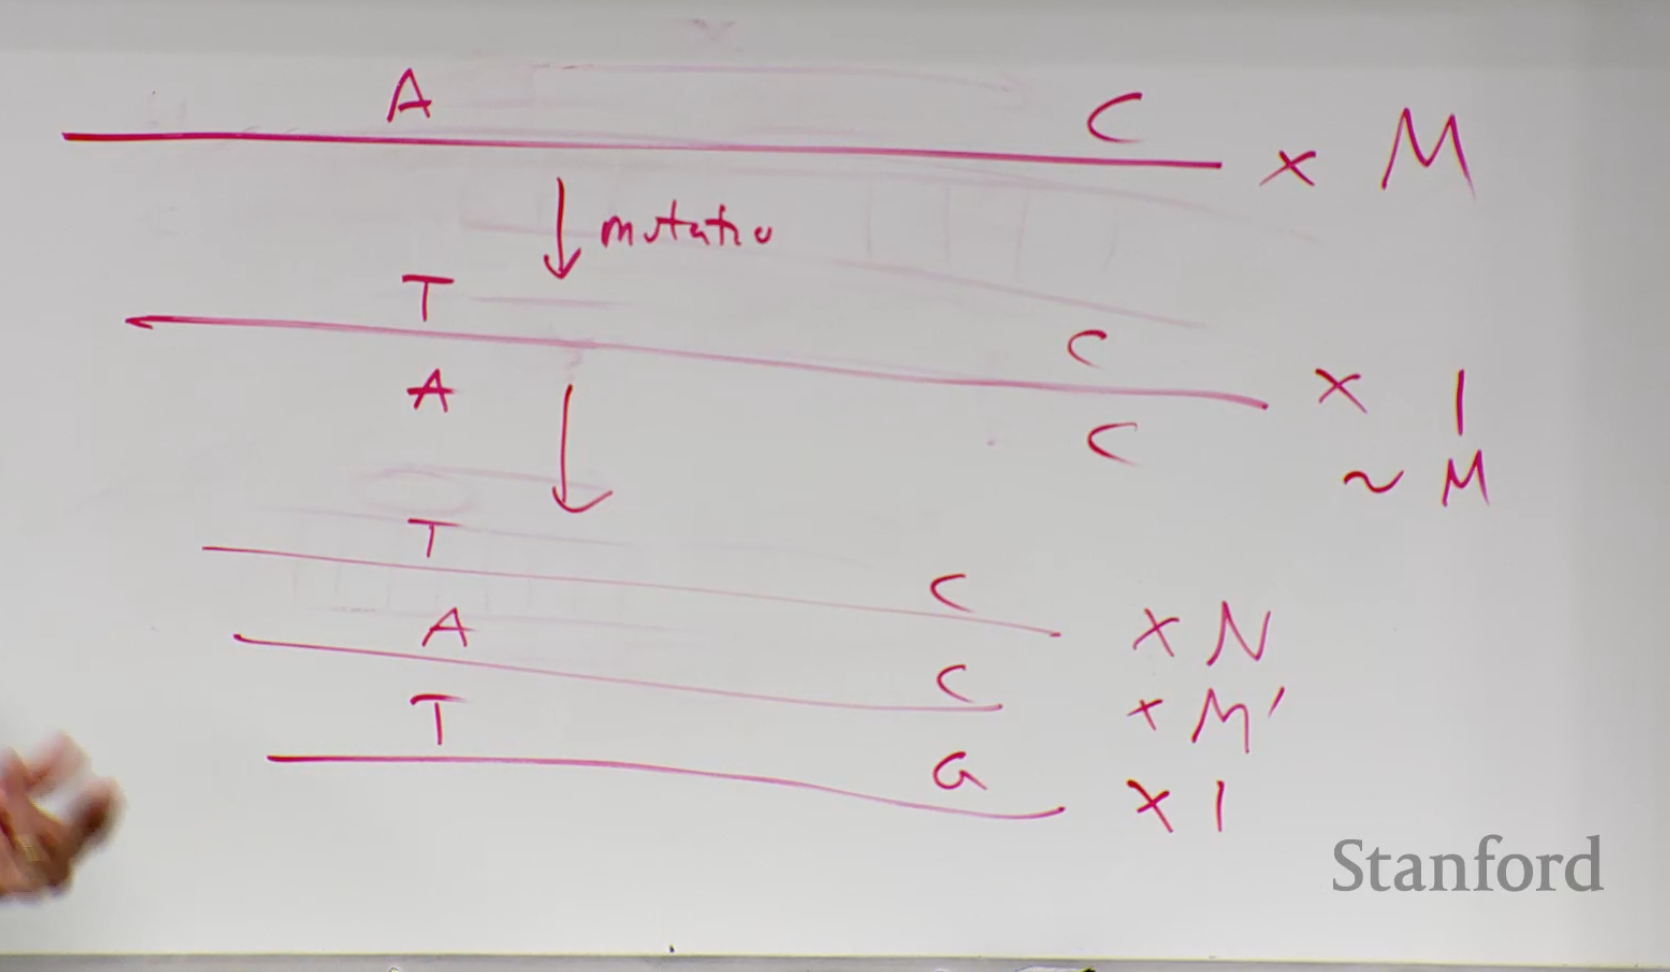 A C × M
mutatio
T C × 1
A C ~ M
T C × N
A C × M'
T G × 1
Stanford